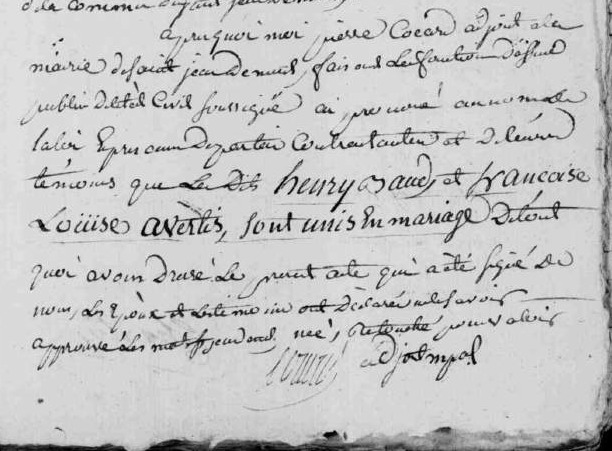 de la commune
apres quoi moi pierre Cocard adjoint a la
mairie de saint jean de faisant les fonctions d'officier
public de l'état Civil soussigné ai prononcé au nom de la
la loi En presence des parties Contractantes et de leurs
témoins que les dits henry et françoise
Louise avertis, sont unis En mariage De tout
quoi avons Dressé le present acte qui a été signé De
nous, les Epoux et les temoins ont Déclaré ne le savoir
approuvé les mots née, retouché pour valoir
adjoint mpal